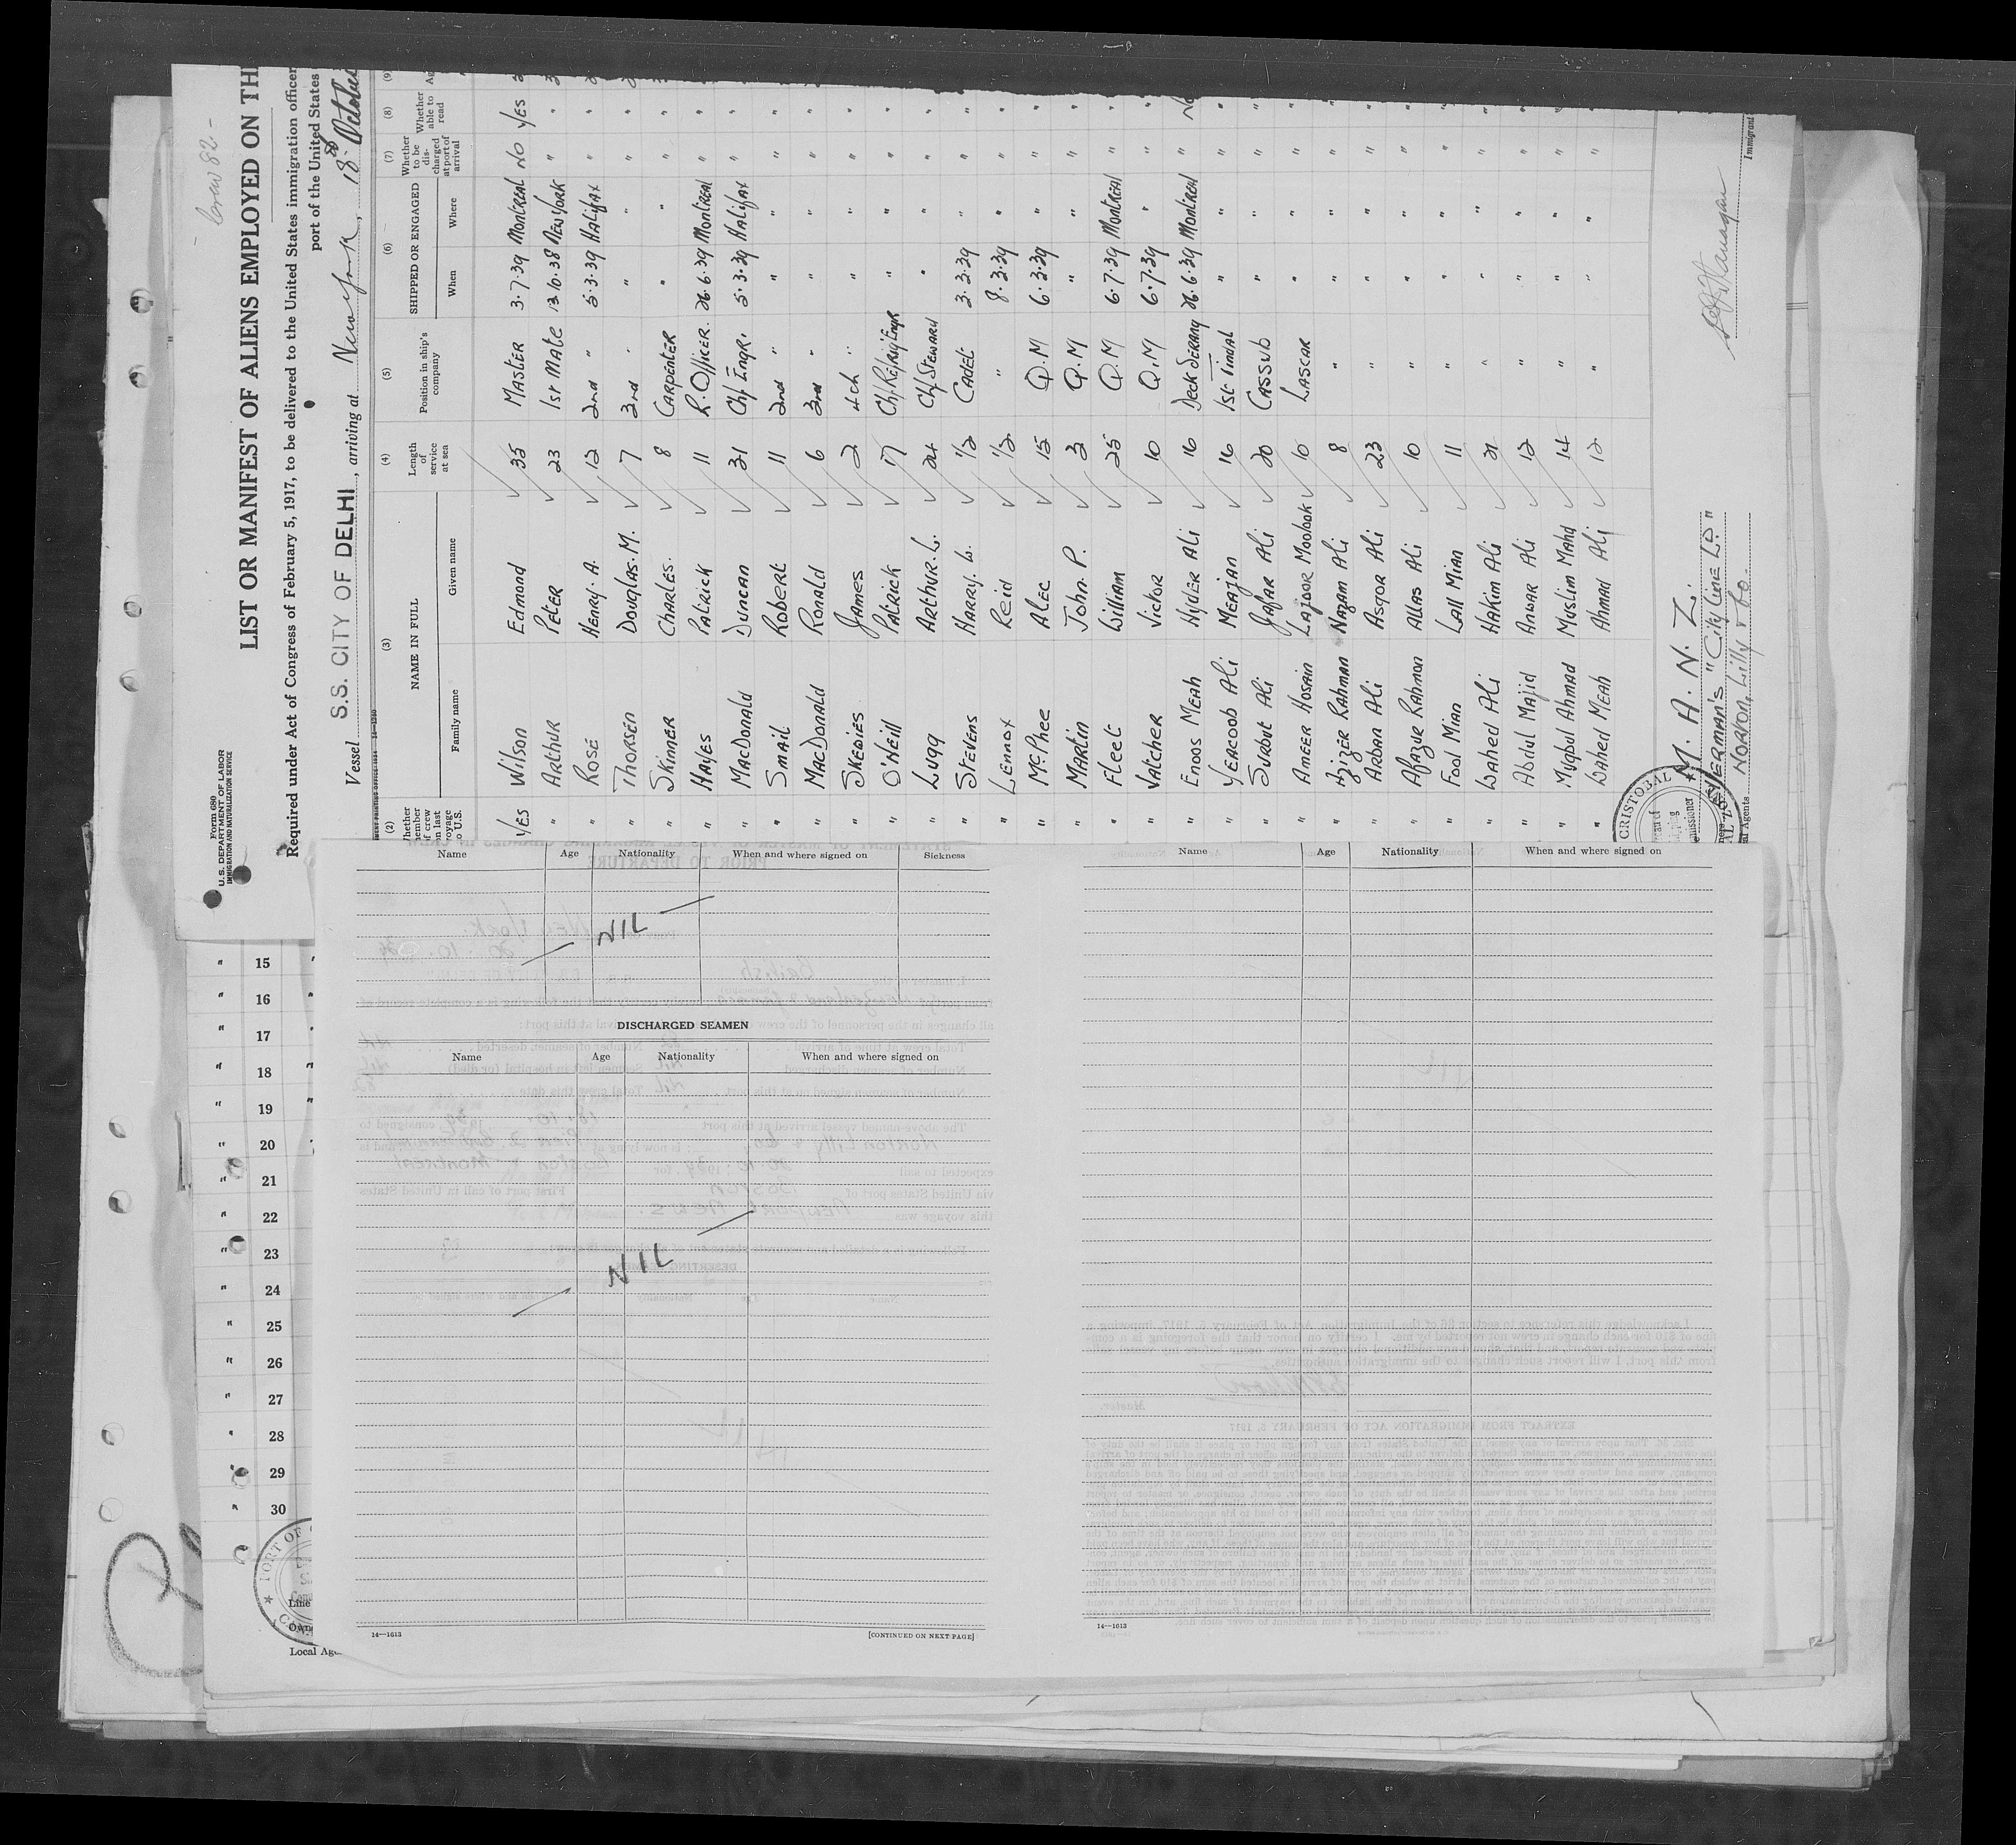 Crew 82 -
Form 680
U.S. DEPARTMENT OF LABOR
IMMIGRATION AND NATURALIZATION SERVICE
LIST OR MANIFEST OF ALIENS EMPLOYED ON TH
Required under Act of Congress of February 5, 1917, to be delivered to the United States immigration officer
port of the United States
Vessel S.S. CITY OF DELHI, arriving at New York, 18th October
(2) (3) (4) (5) (6) (7) (8) (9)
NAME IN FULL
Family name Given name
Length of service at sea
Position in ship's company
SHIPPED OR ENGAGED
When Where
Whether to be discharged at port of arrival
Whether able to read
YES Wilson Edmond 35 MASTER 3.7.39 Montreal No YES
" Arthur Peter 23 1st Mate 13.10.38 New York " "
" Rose Henry. A. 12 2nd " 5.3.39 Halifax " "
" Thorsen Douglas. M. 7 3rd " " " " "
" Skinner Charles. 8 Carpenter " " " "
" Hayes Patrick 11 R. Officer. 26.6.39 Montreal " "
" MacDonald Duncan 31 Chf Engr. 5.3.39 Halifax " "
" Smail Robert 11 2nd " " " " "
" MacDonald Ronald 6 3rd " " " " "
" Skedies James 2 4th " " " " "
" O'Neill Patrick 17 Chf. Refrig Engr " " " "
" Lugg Arthur. L. 24 Chf Steward " " " "
" Stevens Harry. L. 1/2 Cadet 3.3.39 " " "
" Lennox Reid 1/2 " 8.3.39 " " "
" McPhee Alec 15 Q.M 6.3.39 " " "
" Martin John. P. 3 Q.M " " " "
" Fleet William 25 Q.M 6.7.39 Montreal " "
" Vatcher Victor 10 Q.M 6.7.39 " " "
" Enoos Meah Hyder Ali 16 Deck Serang 26.6.39 Montreal " No
" Yeacoob Ali Meajan 16 1st Tindal " " " "
" Surbut Ali Jafar Ali 20 Cassub " " " "
" Ameer Hosain Lajoor Moolook 10 Lascar " " " "
" Azizer Rahman Nazam Ali 8 " " " " "
" Arban Ali Asgor Ali 23 " " " " "
" Afazur Rahman Allas Ali 10 " " " " "
" Fool Mian Lall Mian 11 " " " " "
" Wahed Ali Hakim Ali 21 " " " " "
" Abdul Majid Anwar Ali 12 " " " " "
" Muqbul Ahmad Muslim Mahd 14 " " " " "
" Wahed Meah Ahmad Ali 12 " " " " "
M. A. N. Z.
"City Line Ld"
Norton, Lilly & Co.
CRISTOBAL
Immigrant
Name Age Nationality When and where signed on Sickness
NIL
DISCHARGED SEAMEN
Name Age Nationality When and where signed on
NIL
14—1613 [CONTINUED ON NEXT PAGE]
Name Age Nationality When and where signed on
14—1613
" 15
" 16
" 17
" 18
" 19
" 20
" 21
" 22
" 23
" 24
" 25
" 26
" 27
" 28
" 29
" 30
Line
Own
Local Age